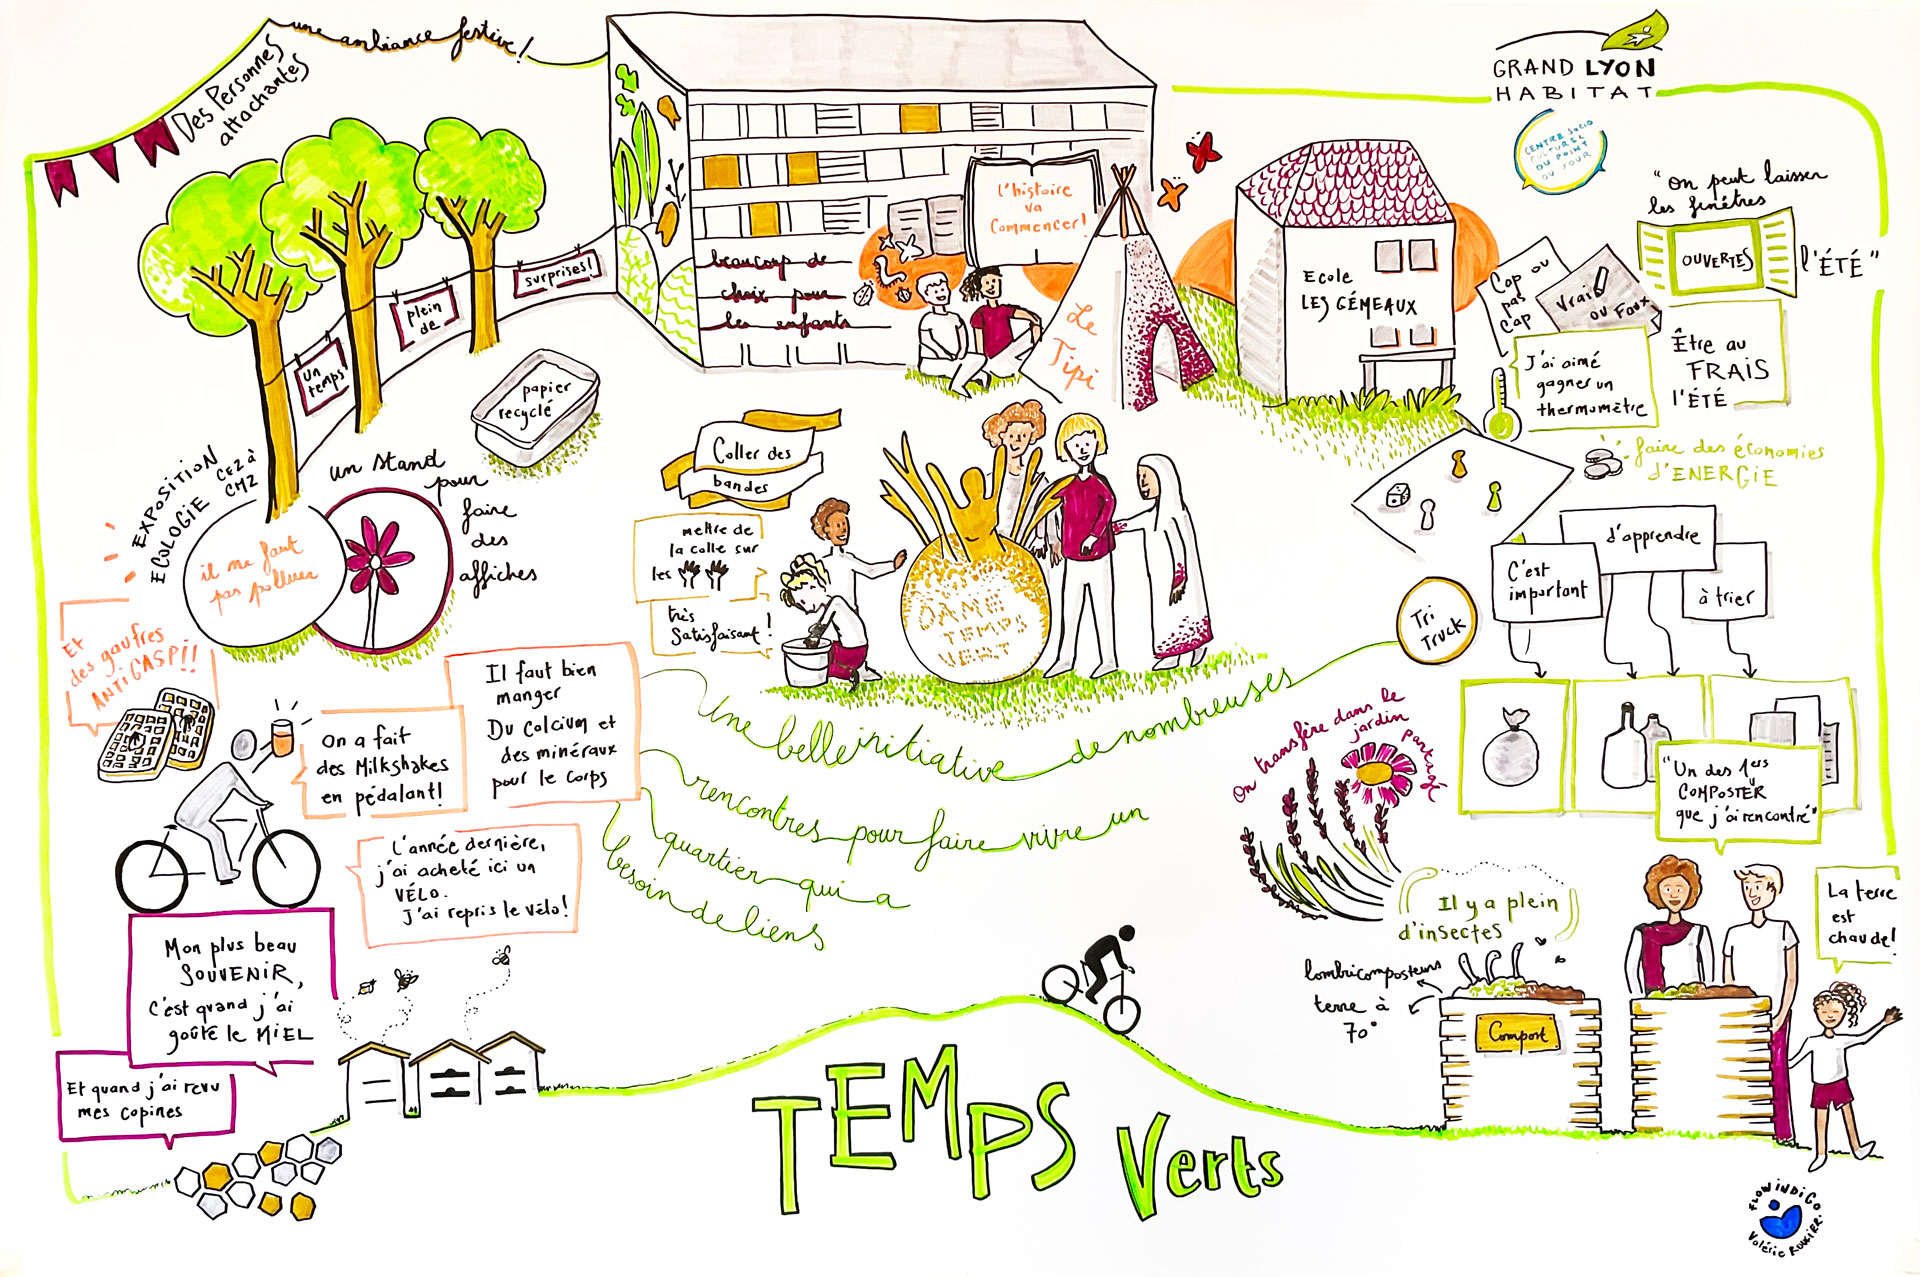 une ambiance festive!
Des Personnes
attachantes
GRAND LYON
HABITAT
CENTRE SOCIO
CULTUREL
DU POINT
DU JOUR
L'histoire
va
Commencer!
beaucoup de
choix pour
les enfants
Le
Tipi
Ecole
LES GÉMEAUX
"On peut laisser
les fenêtres
OUVERTES
l'ÉTÉ"
Cap ou
pas
Cap
Vrai
ou Faux
J'ai aimé
gagner un
thermomètre
Être au
FRAIS
l'ÉTÉ
faire des économies
d'ENERGIE
un
temps
plein
de
surprises!
papier
recyclé
EXPOSITION
ECOLOGIE
CE2 à
CM2
il ne faut
pas polluer
un stand
pour
faire
des
affiches
Coller des
bandes
mettre de
la colle sur
les
très
satisfaisant!
DAME
TEMPS
VERT
C'est
important
d'apprendre
à trier
Tri
Truck
Et
des gaufres
ANTIGASPI!!
On a fait
des Milkshakes
en pédalant!
Il faut bien
manger
Du Calcium et
des minéraux
pour le corps
L'année dernière,
j'ai acheté ici un
VÉLO.
J'ai repris le vélo!
Une belle initiative de nombreuses
rencontres pour faire vivre un
quartier qui a
besoin de liens
On transfère dans le
jardin partagé
"Un des 1ers
COMPOSTER
que j'ai rencontré"
Il y a plein
d'insectes
lombricomposteurs
terre à
70°
Compost
La terre
est
chaude!
Mon plus beau
SOUVENIR,
C'est quand j'ai
goûté le MIEL
Et quand j'ai revu
mes copines
TEMPS
Verts
FLOWINDIGO
Valérie ROUGIER.